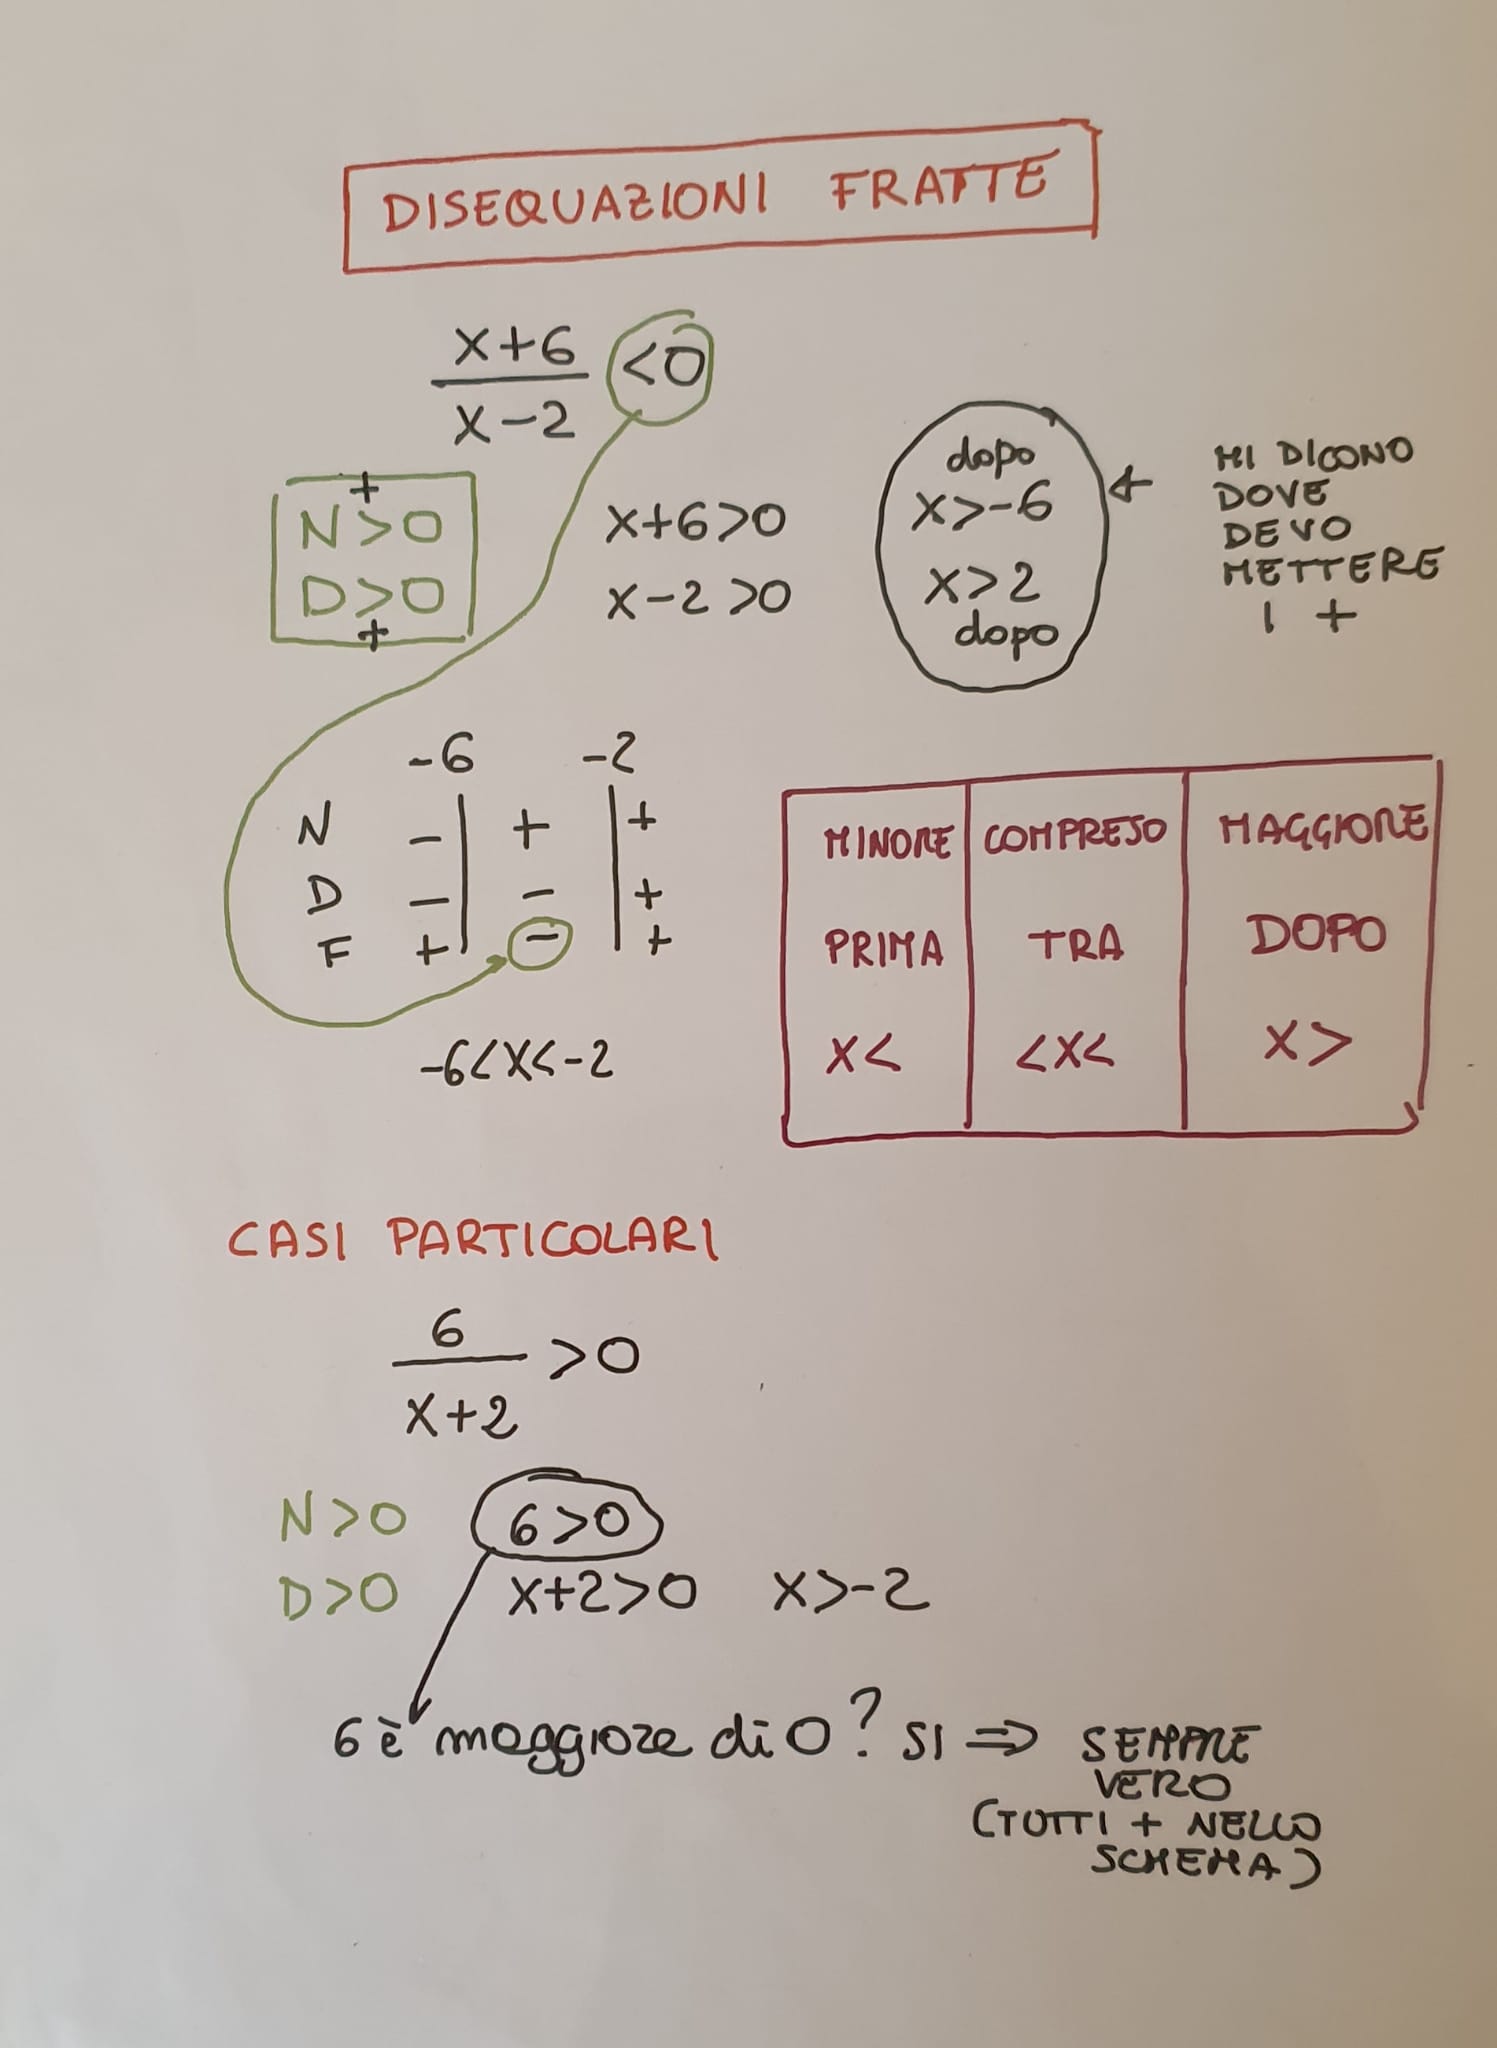 DISEQUAZIONI FRATTE
x+6
<0
x-2
+
N>0
D>0
+
x+6>0
x-2>0
dopo
x>-6
x>2
dopo
←
MI DICONO
DOVE
DEVO
METTERE
I +
-6 -2
N - + +
D - - +
F + - +
-6<x<-2
MINORE COMPRESO MAGGIORE
PRIMA TRA DOPO
x< <x< x>
CASI PARTICOLARI
6
>0
x+2
N>0 6>0
D>0 x+2>0 x>-2
6 è maggiore di 0? SI ⇒ SEMPRE
VERO
(TUTTI + NELLO
SCHEMA)